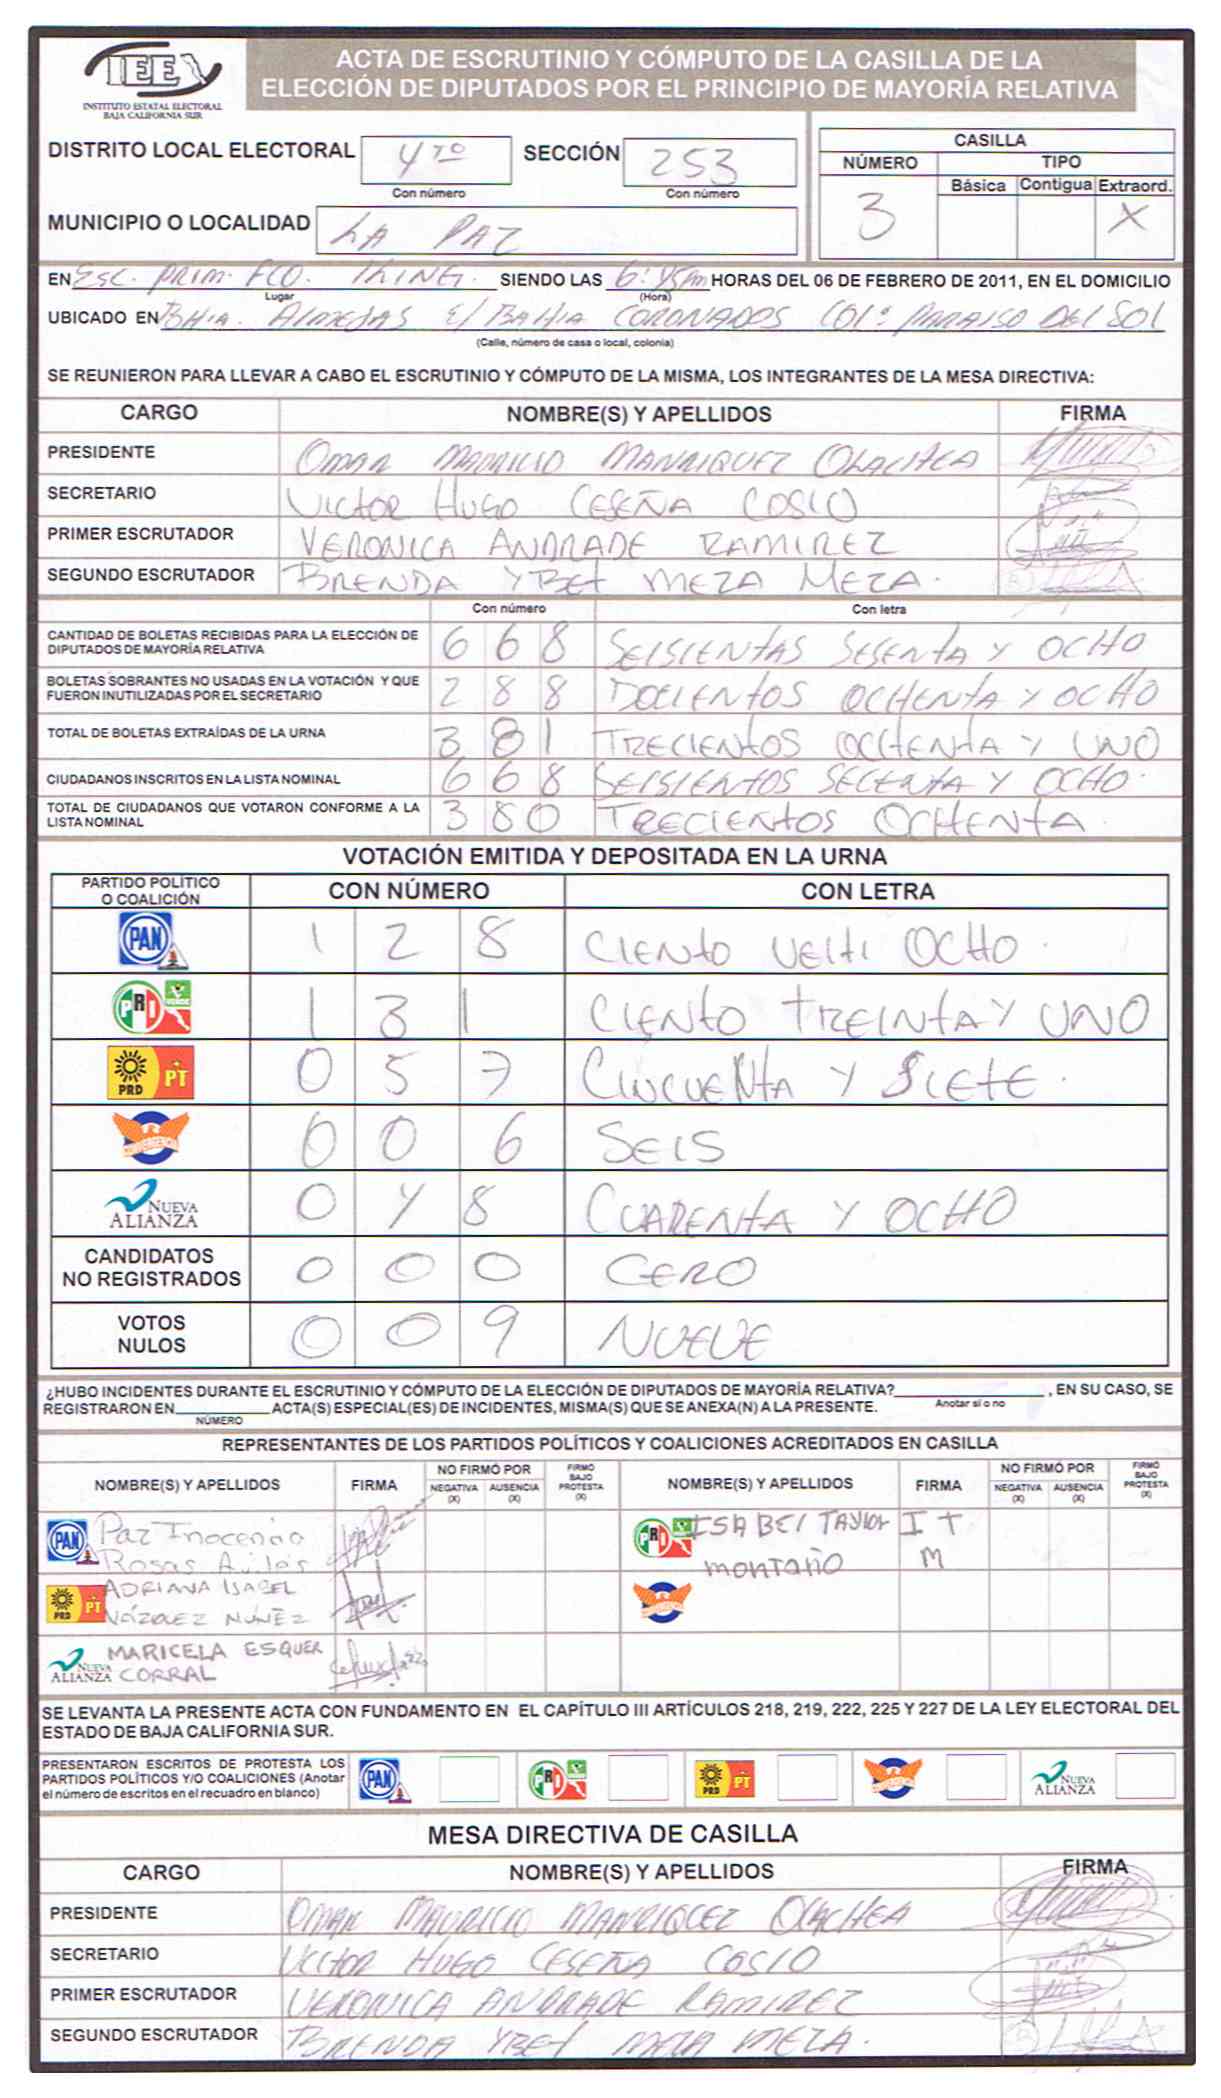 IEE
INSTITUTO ESTATAL ELECTORAL
BAJA CALIFORNIA SUR
ACTA DE ESCRUTINIO Y CÓMPUTO DE LA CASILLA DE LA
ELECCIÓN DE DIPUTADOS POR EL PRINCIPIO DE MAYORÍA RELATIVA
DISTRITO LOCAL ELECTORAL 4TO SECCIÓN 253
Con número Con número
MUNICIPIO O LOCALIDAD LA PAZ
CASILLA
NÚMERO TIPO
Básica Contigua Extraord.
3 X
EN Esc. PRIM. FCO. KING. SIENDO LAS 6:45pm HORAS DEL 06 DE FEBRERO DE 2011, EN EL DOMICILIO
Lugar (Hora)
UBICADO EN BAHIA. ALMEJAS E/ BAHIA CORONADOS COL. PARAISO DEL SOL
(Calle, número de casa o local, colonia)
SE REUNIERON PARA LLEVAR A CABO EL ESCRUTINIO Y CÓMPUTO DE LA MISMA, LOS INTEGRANTES DE LA MESA DIRECTIVA:
CARGO NOMBRE(S) Y APELLIDOS FIRMA
PRESIDENTE OMAR MAURICIO MANRIQUEZ OLACHEA
SECRETARIO VICTOR HUGO CESEÑA COSIO
PRIMER ESCRUTADOR VERONICA ANDRADE RAMIREZ
SEGUNDO ESCRUTADOR BRENDA YBET MEZA MEZA.
Con número Con letra
CANTIDAD DE BOLETAS RECIBIDAS PARA LA ELECCIÓN DE
DIPUTADOS DE MAYORÍA RELATIVA 6 6 8 SEISIENTAS SESENTA Y OCHO
BOLETAS SOBRANTES NO USADAS EN LA VOTACIÓN Y QUE
FUERON INUTILIZADAS POR EL SECRETARIO 2 8 8 DOCIENTOS OCHENTA Y OCHO
TOTAL DE BOLETAS EXTRAÍDAS DE LA URNA 3 8 1 TRECIENTOS OCHENTA Y UNO
CIUDADANOS INSCRITOS EN LA LISTA NOMINAL 6 6 8 SEISIENTOS SECENTA Y OCHO.
TOTAL DE CIUDADANOS QUE VOTARON CONFORME A LA
LISTA NOMINAL 3 8 0 TRECIENTOS OCHENTA.
VOTACIÓN EMITIDA Y DEPOSITADA EN LA URNA
PARTIDO POLÍTICO
O COALICIÓN CON NÚMERO CON LETRA
PAN 1 2 8 CIENTO VEITI OCHO.
PRI VERDE 1 3 1 CIENTO TREINTA Y UNO
PRD PT 0 5 7 CINCUENTA Y SIETE.
CONVERGENCIA 0 0 6 SEIS
NUEVA ALIANZA 0 4 8 CUARENTA Y OCHO
CANDIDATOS
NO REGISTRADOS 0 0 0 CERO
VOTOS
NULOS 0 0 9 NUEVE
¿HUBO INCIDENTES DURANTE EL ESCRUTINIO Y CÓMPUTO DE LA ELECCIÓN DE DIPUTADOS DE MAYORÍA RELATIVA? , EN SU CASO, SE
Anotar sí o no
REGISTRARON EN ACTA(S) ESPECIAL(ES) DE INCIDENTES, MISMA(S) QUE SE ANEXA(N) A LA PRESENTE.
NÚMERO
REPRESENTANTES DE LOS PARTIDOS POLÍTICOS Y COALICIONES ACREDITADOS EN CASILLA
NOMBRE(S) Y APELLIDOS FIRMA NO FIRMÓ POR NEGATIVA (X) AUSENCIA (X) FIRMÓ BAJO PROTESTA (X) NOMBRE(S) Y APELLIDOS FIRMA NO FIRMÓ POR NEGATIVA (X) AUSENCIA (X) FIRMÓ BAJO PROTESTA (X)
PAN Paz Inocencio
Rosas Avilés
PRI ISABEL TAYLOR I T
montaño M
PRD PT ADRIANA ISABEL
VÁZQUEZ NÚÑEZ
CONVERGENCIA
NUEVA ALIANZA MARICELA ESQUER
CORRAL
SE LEVANTA LA PRESENTE ACTA CON FUNDAMENTO EN EL CAPÍTULO III ARTÍCULOS 218, 219, 222, 225 Y 227 DE LA LEY ELECTORAL DEL
ESTADO DE BAJA CALIFORNIA SUR.
PRESENTARON ESCRITOS DE PROTESTA LOS
PARTIDOS POLÍTICOS Y/O COALICIONES (Anotar
el número de escritos en el recuadro en blanco)
PAN PRI PRD PT CONVERGENCIA NUEVA ALIANZA
MESA DIRECTIVA DE CASILLA
CARGO NOMBRE(S) Y APELLIDOS FIRMA
PRESIDENTE OMAR MAURICIO MANRIQUEZ OLACHEA
SECRETARIO VICTOR HUGO CESEÑA COSIO
PRIMER ESCRUTADOR VERONICA ANDRADE RAMIREZ
SEGUNDO ESCRUTADOR BRENDA YBET MEZA MEZA.